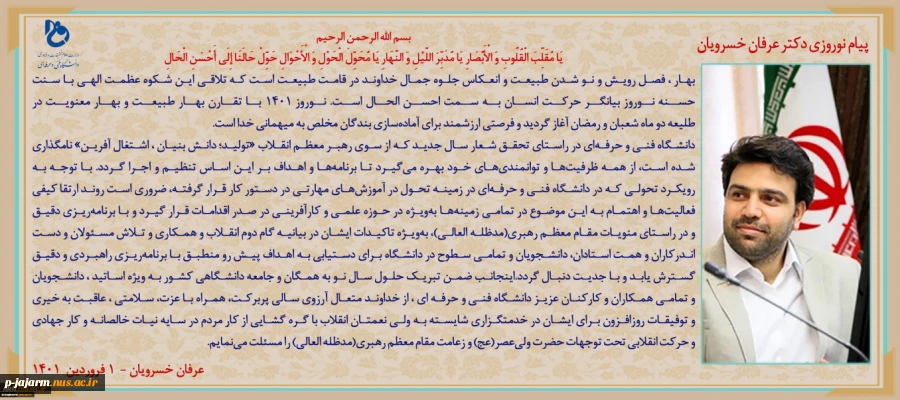 بسم الله الرحمن الرحیم
پیام نوروزی دکتر عرفان خسرویان
یَا مُقَلِّبَ الْقُلُوبِ وَ الْأَبْصَارِ یَا مُدَبِّرَ اللَّیْلِ وَ النَّهَارِ یَا مُحَوِّلَ الْحَوْلِ وَ الْأَحْوَالِ حَوِّلْ حَالَنَا إِلَى أَحْسَنِ الْحَالِ
بهار، فصل رویش و نو شدن طبیعت و انعکاس جلوه جمال خداوند در قامت طبیعت است که تلاقی این شکوه عظمت الهی با سنت
حسنه نوروز بیانگر حرکت انسان به سمت احسن الحال است. نوروز ۱۴۰۱ با تقارن بهار طبیعت و بهار معنویت در
طلیعه دو ماه شعبان و رمضان آغاز گردید و فرصتی ارزشمند برای آماده‌سازی بندگان مخلص به میهمانی خدا است.
دانشگاه فنی و حرفه‌ای در راستای تحقق شعار سال جدید که از سوی رهبر معظم انقلاب «تولید؛ دانش بنیان ، اشتغال آفرین» نامگذاری
شده است، از همه ظرفیت‌ها و توانمندی‌های خود بهره می‌گیرد تا برنامه‌ها و اهداف بر این اساس تنظیم و اجرا گردد. با توجه به
رویکرد تحولی که در دانشگاه فنی و حرفه‌ای در زمینه تحول در آموزش‌های مهارتی در دستور کار قرار گرفته، ضروری است روند ارتقا کیفی
فعالیت‌ها و اهتمام به این موضوع در تمامی زمینه‌ها به‌ویژه در حوزه علمی و کارآفرینی در صدر اقدامات قرار گیرد و با برنامه‌ریزی دقیق
و در راستای منویات مقام معظم رهبری(مدظله العالی)، به‌ویژه تاکیدات ایشان در بیانیه گام دوم انقلاب و همکاری و تلاش مسئولان و دست
اندرکاران و همت استادان، دانشجویان و تمامی سطوح در دانشگاه برای دستیابی به اهداف پیش رو منطبق با برنامه‌ریزی راهبردی و دقیق
گسترش یابد و با جدیت دنبال گردد.اینجانب ضمن تبریک حلول سال نو به همگان و جامعه دانشگاهی کشور به ویژه اساتید ، دانشجویان
و تمامی همکاران و کارکنان عزیز دانشگاه فنی و حرفه ای ، از خداوند متعال آرزوی سالی پربرکت، همراه با عزت، سلامتی ، عاقبت به خیری
و توفیقات روزافزون برای ایشان در خدمتگزاری شایسته به ولی نعمتان انقلاب با گره گشایی از کار مردم در سایه نیات خالصانه و کار جهادی
و حرکت انقلابی تحت توجهات حضرت ولی‌عصر(عج) و زعامت مقام معظم رهبری(مدظله العالی) را مسئلت می‌نمایم.
عرفان خسرویان - ۱ فروردین ۱۴۰۱
p-jajarm.nus.ac.ir